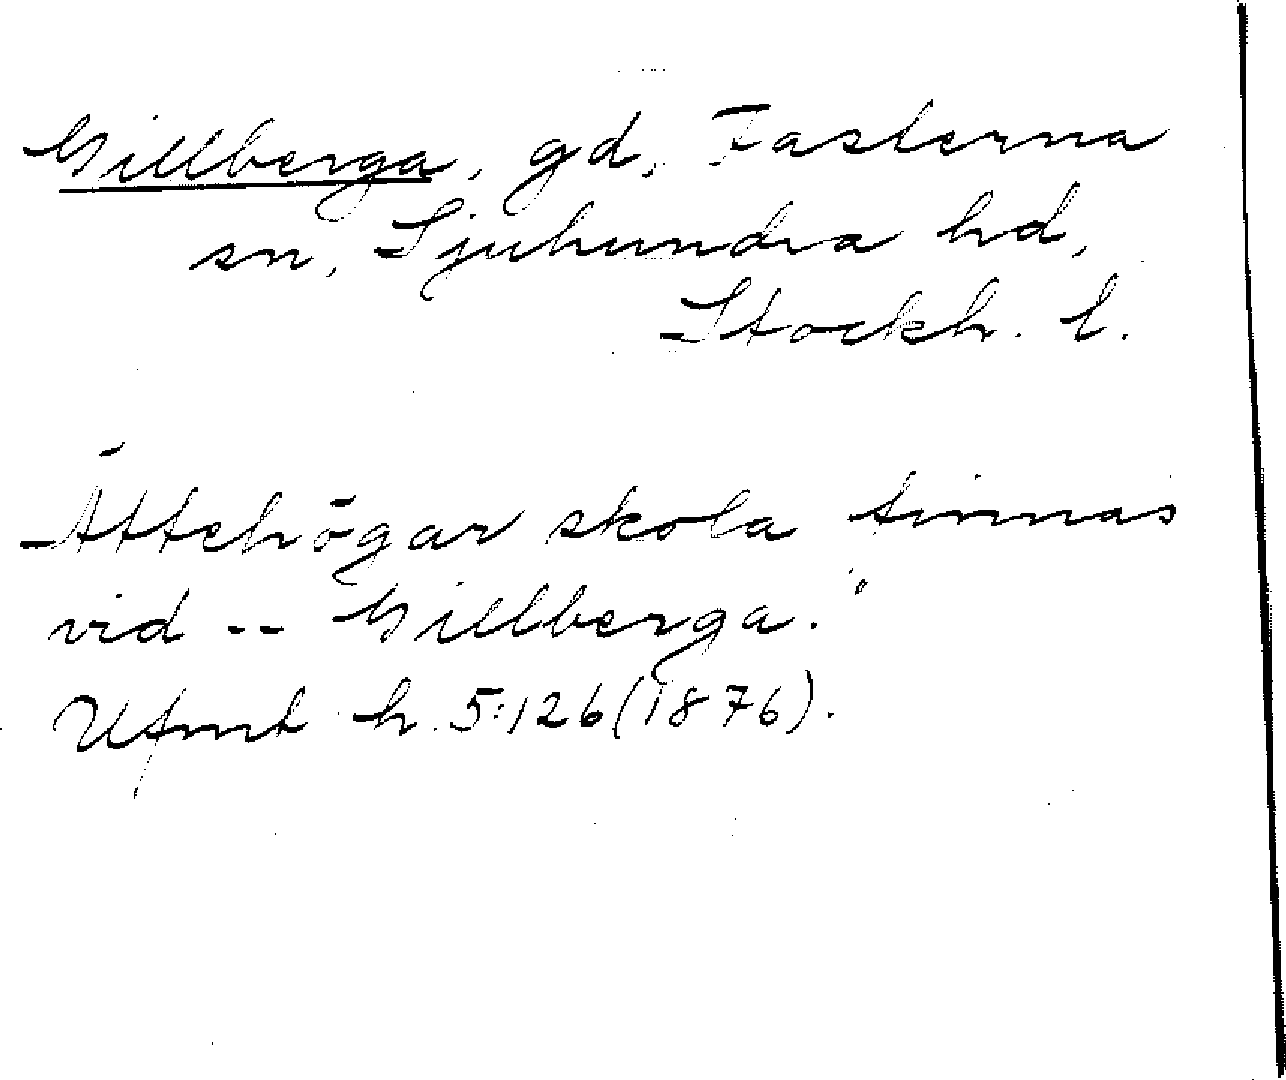 Gillberga, gd, Fasterna
sn, Sjuhundra hd,
Stockh. l.
Ättehögar skola finnas
vid -- Gillberga."
Ufmt h. 5:126 (1876).